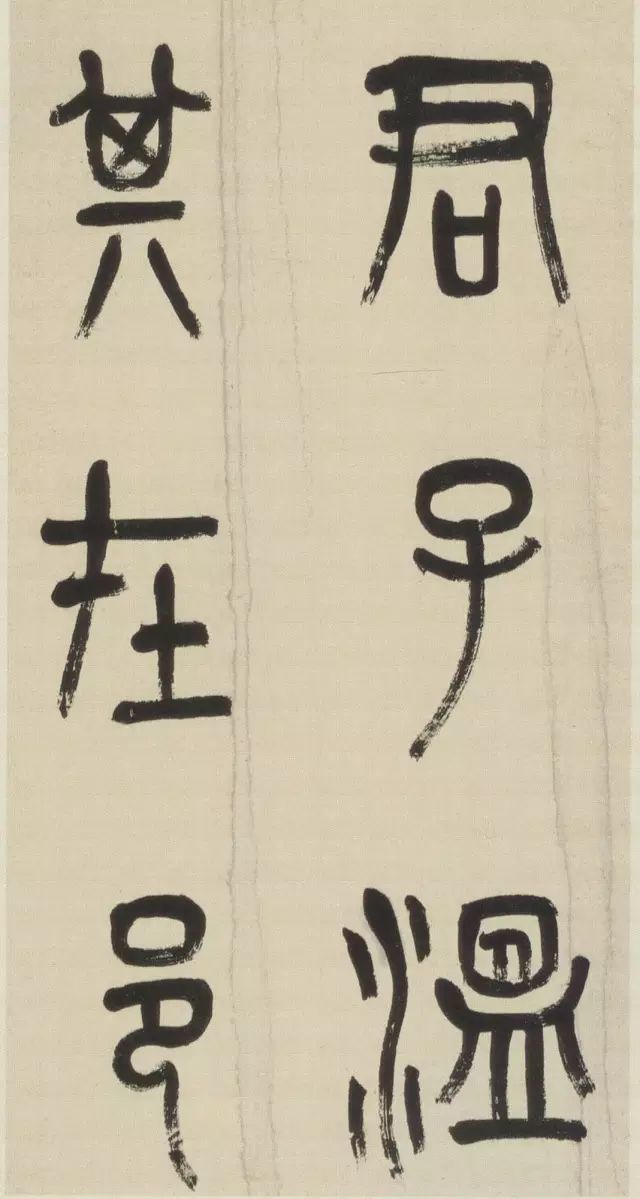 君子溫
其在邑